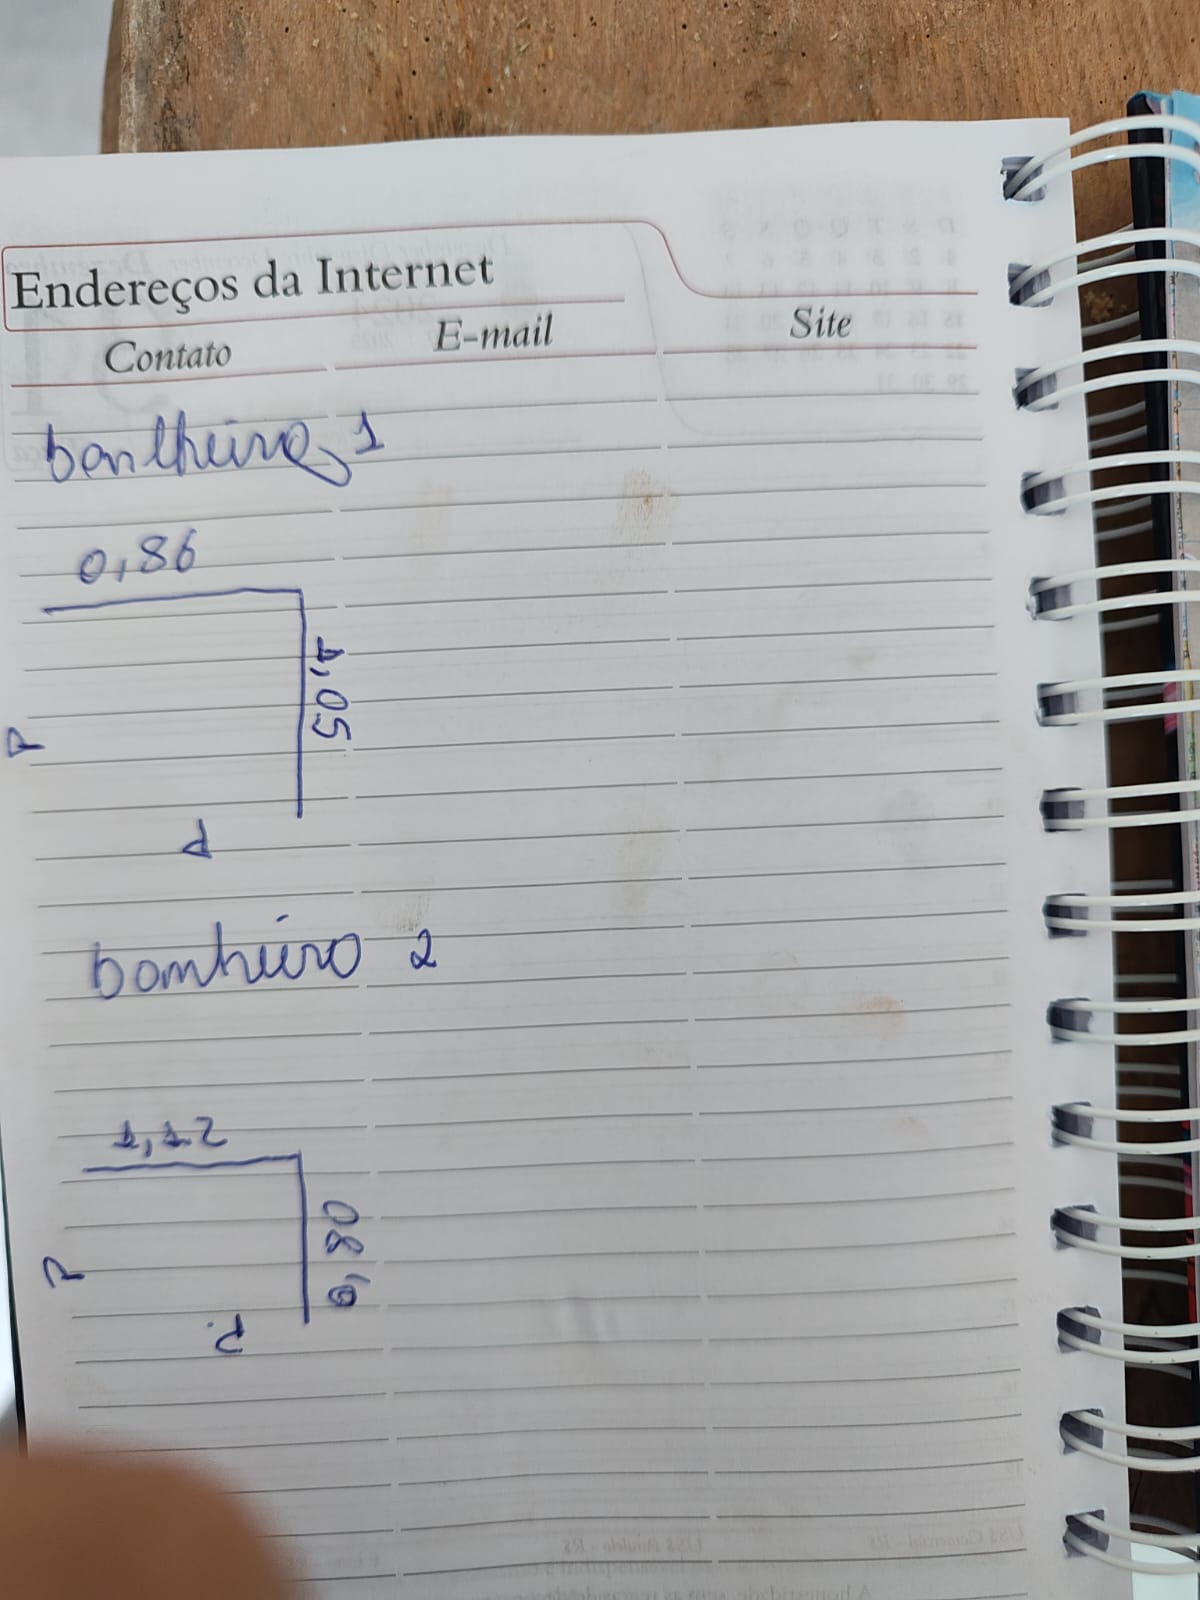 Endereços da Internet
Contato E-mail Site
banheiro 1
0,86
1,05
P
P
banheiro 2
1,12
0,80
P
P.